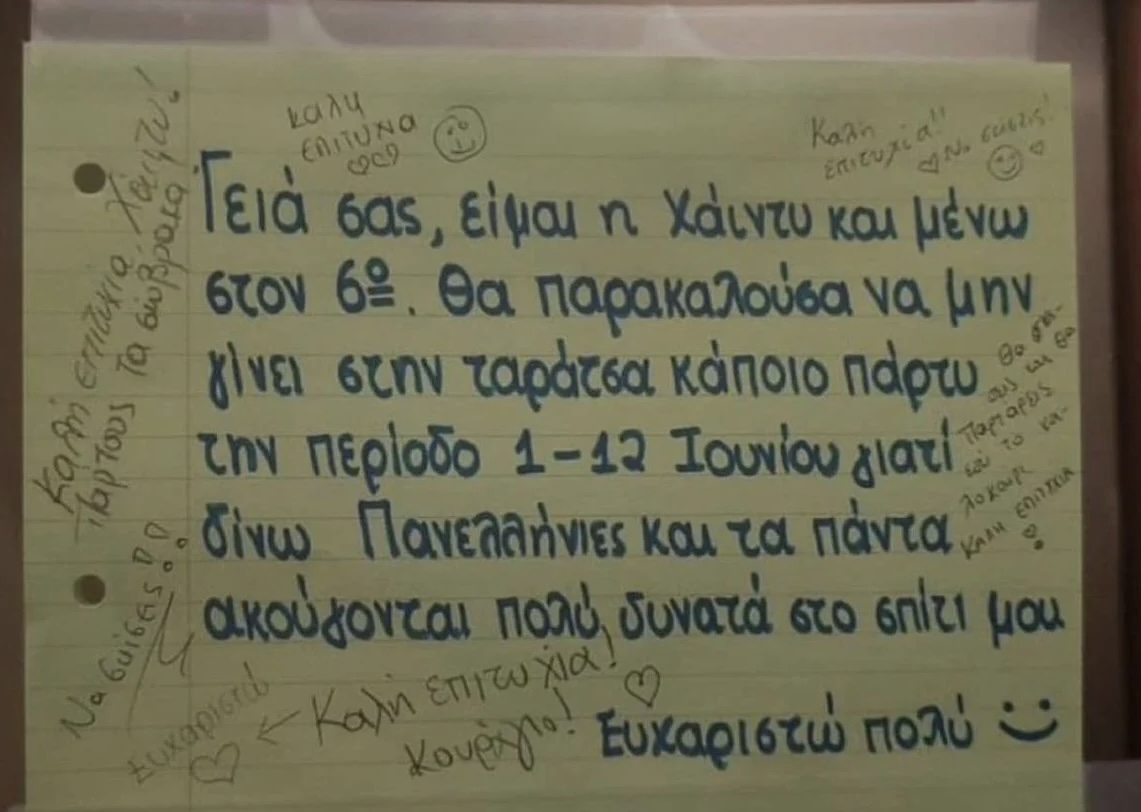 καλη
επιτυχια
Καλή
επιτυχία!!
Να σκίσεις!
Γειά σας, είμαι η Χάιντυ και μένω
στον 6º. Θα παρακαλούσα να μην
γίνει στην ταράτσα κάποιο πάρτυ
την περίοδο 1-12 Ιουνίου γιατί
δίνω Πανελλήνιες και τα πάντα
ακούγονται πολύ δυνατά στο σπίτι μου
Ευχαριστώ πολύ
Καλή επιτυχία Χάιντυ!
Πάρτους τα σώβρακα
Να σκίσεις!!
Ευχαριστώ
Καλή επιτυχία!
Κουράγιο!
Θα
και θα
παρταρεις
το κα-
λοκαιρι
Καλη επιτυχια